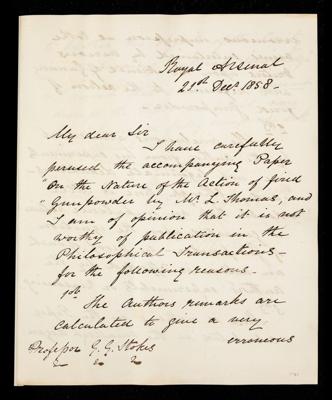 Royal Arsenal
21st Decr. 1858.
My dear Sir
I have carefully
perused the accompanying Paper
"On the Nature of the Action of fired
Gunpowder by Mr. L. Thomas, and
I am of opinion that it is not
worthy of publication in the
Philosophical Transactions -
for the following reasons -
1st.
The Authors remarks are
calculated to give a very
erroneous
Professor G. G. Stokes